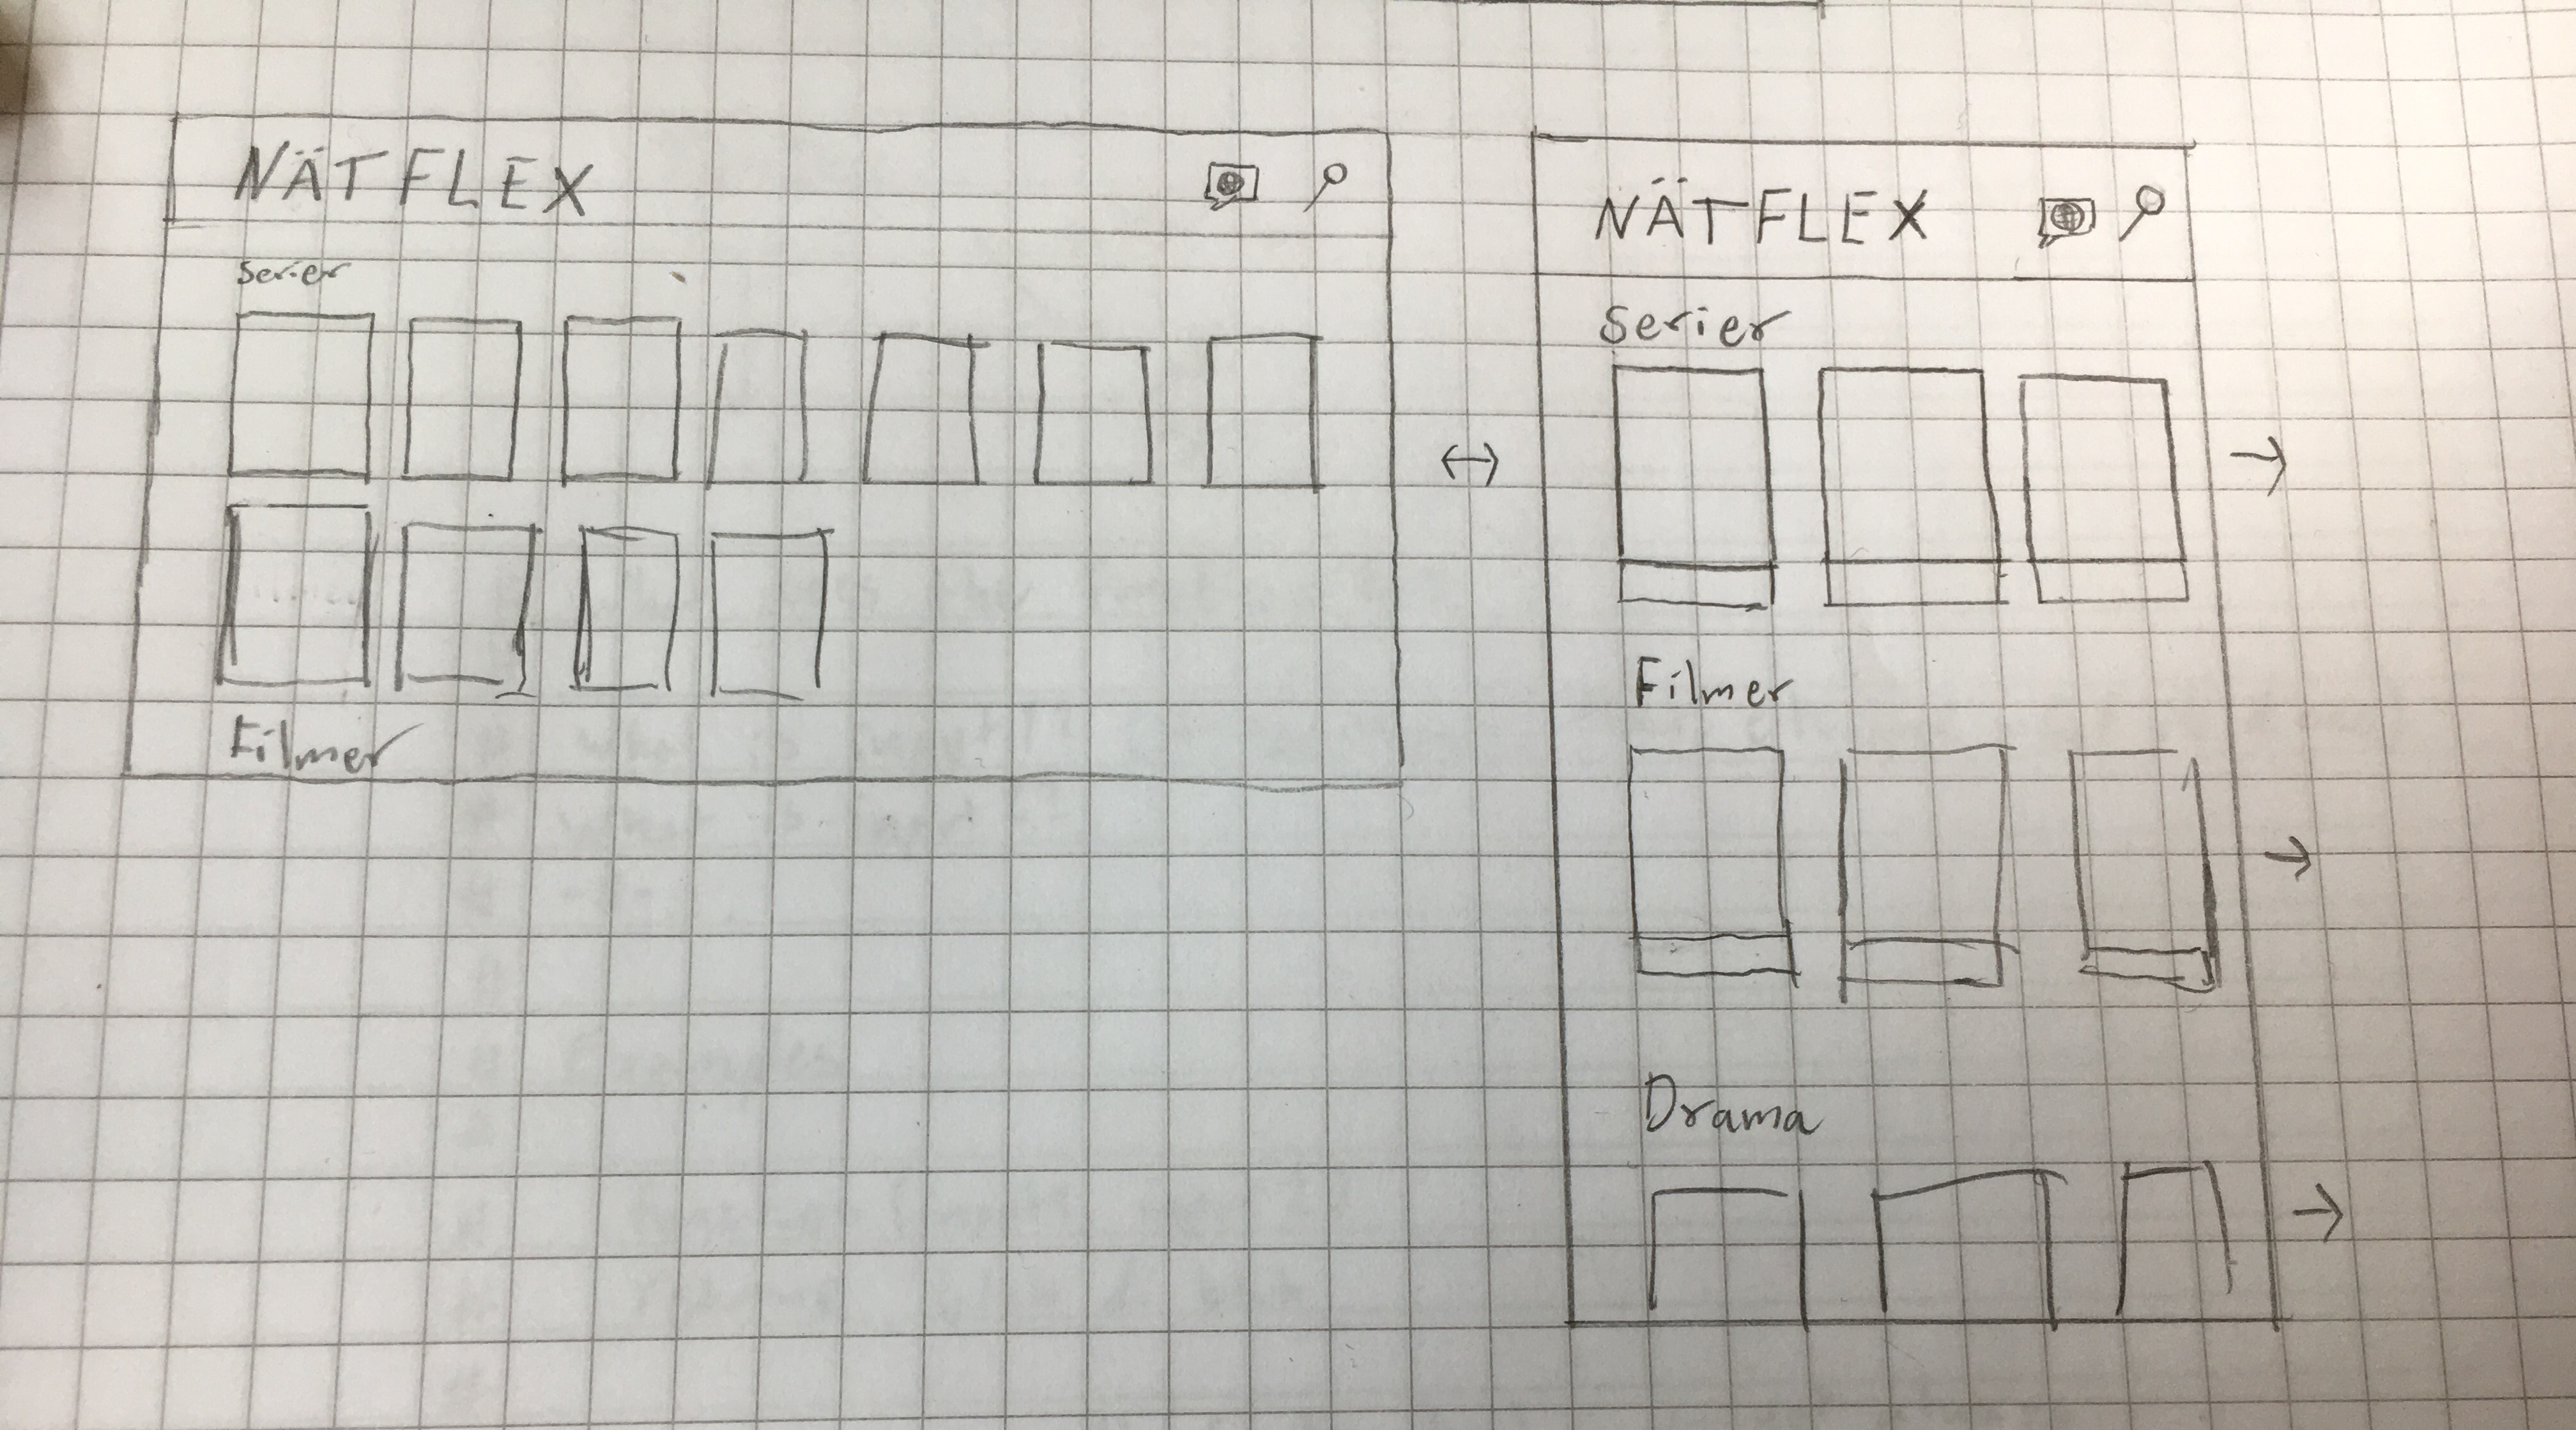 NÄTFLEX
Serier
Filmer
NÄTFLEX
Serier
Filmer
Drama